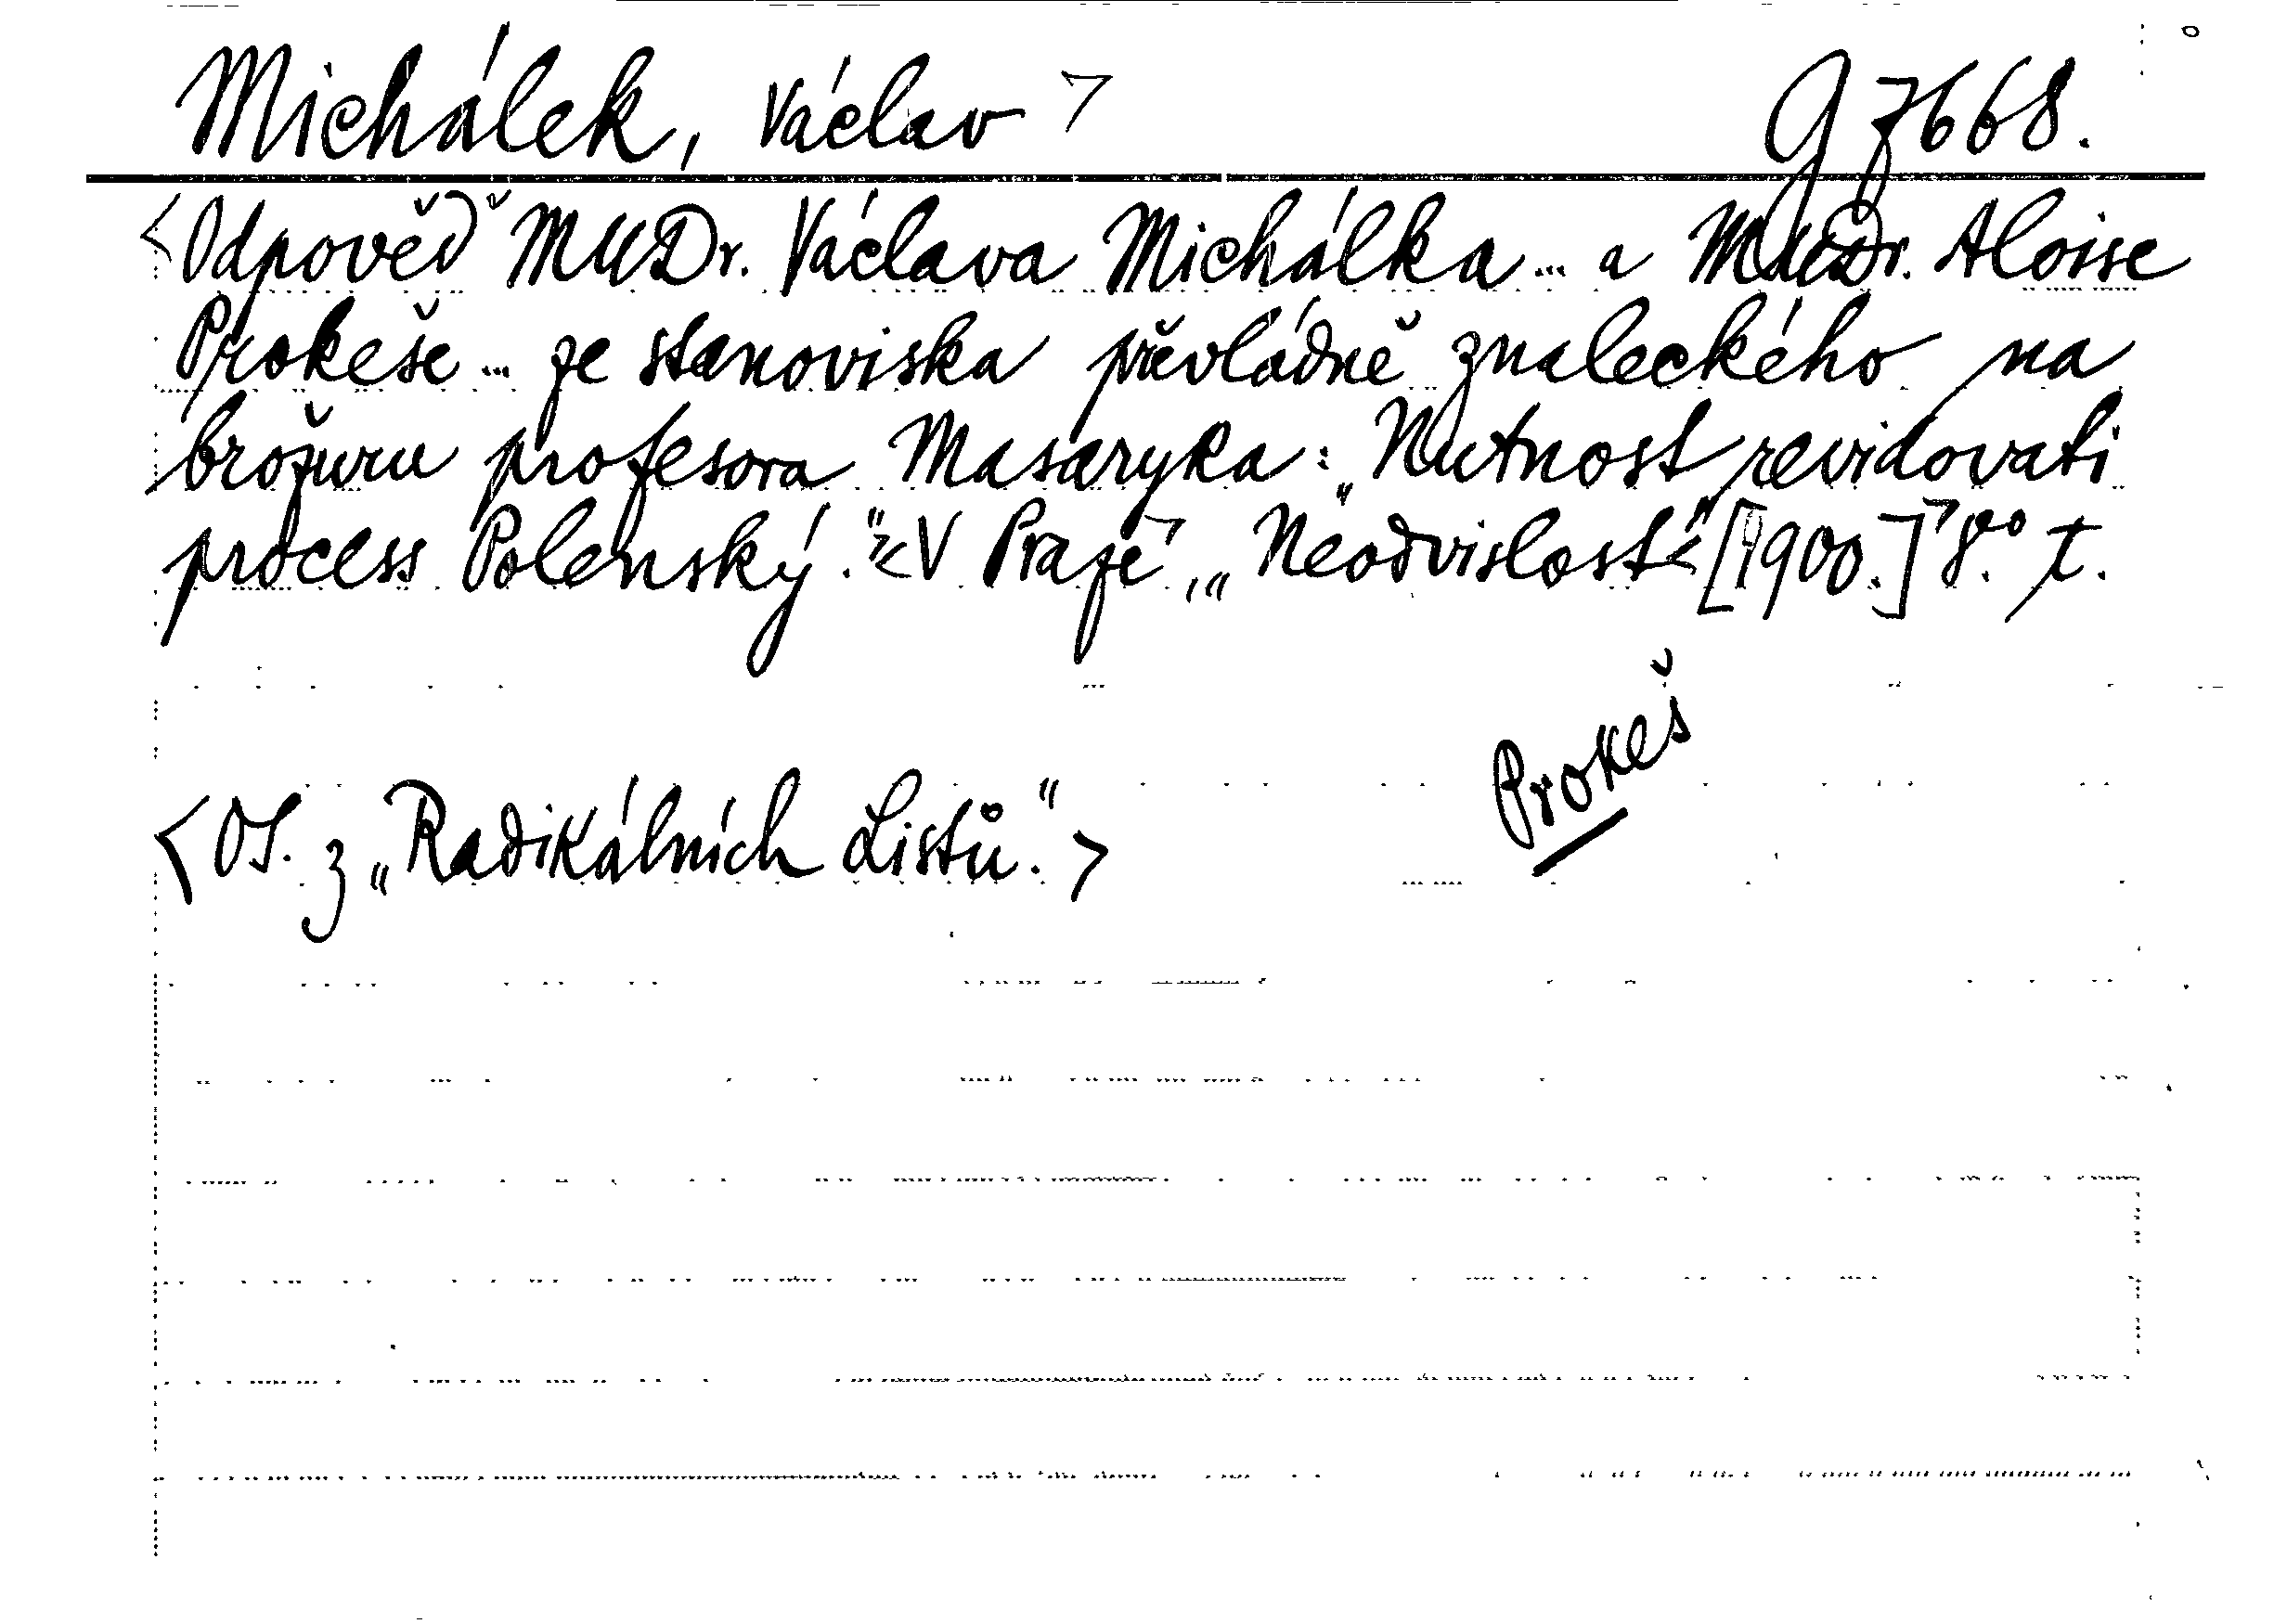 Michálek, Václav
G 7668.
Odpověď MUDr. Václava Michálka... a MUDr. Aloise
Prokeše... ze stanoviska převládně znaleckého na
brožuru profesora Masaryka: „Nutnost revidovati
process Polenský." V Praze, „Neodvislost" [1900.] 8.° t.
Prokeš
<OS. z „Radikálních Listů.">